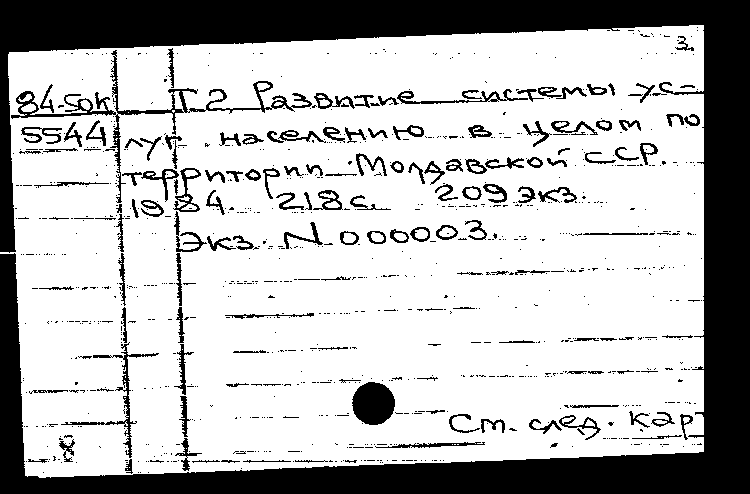 3.
84-50к Т.2. Развитие системы ус-
5544 луг населению в целом по
территории Молдавской ССР.
1984. 218 с. 209 экз.
Экз. N 000003.
См. след. карт
8